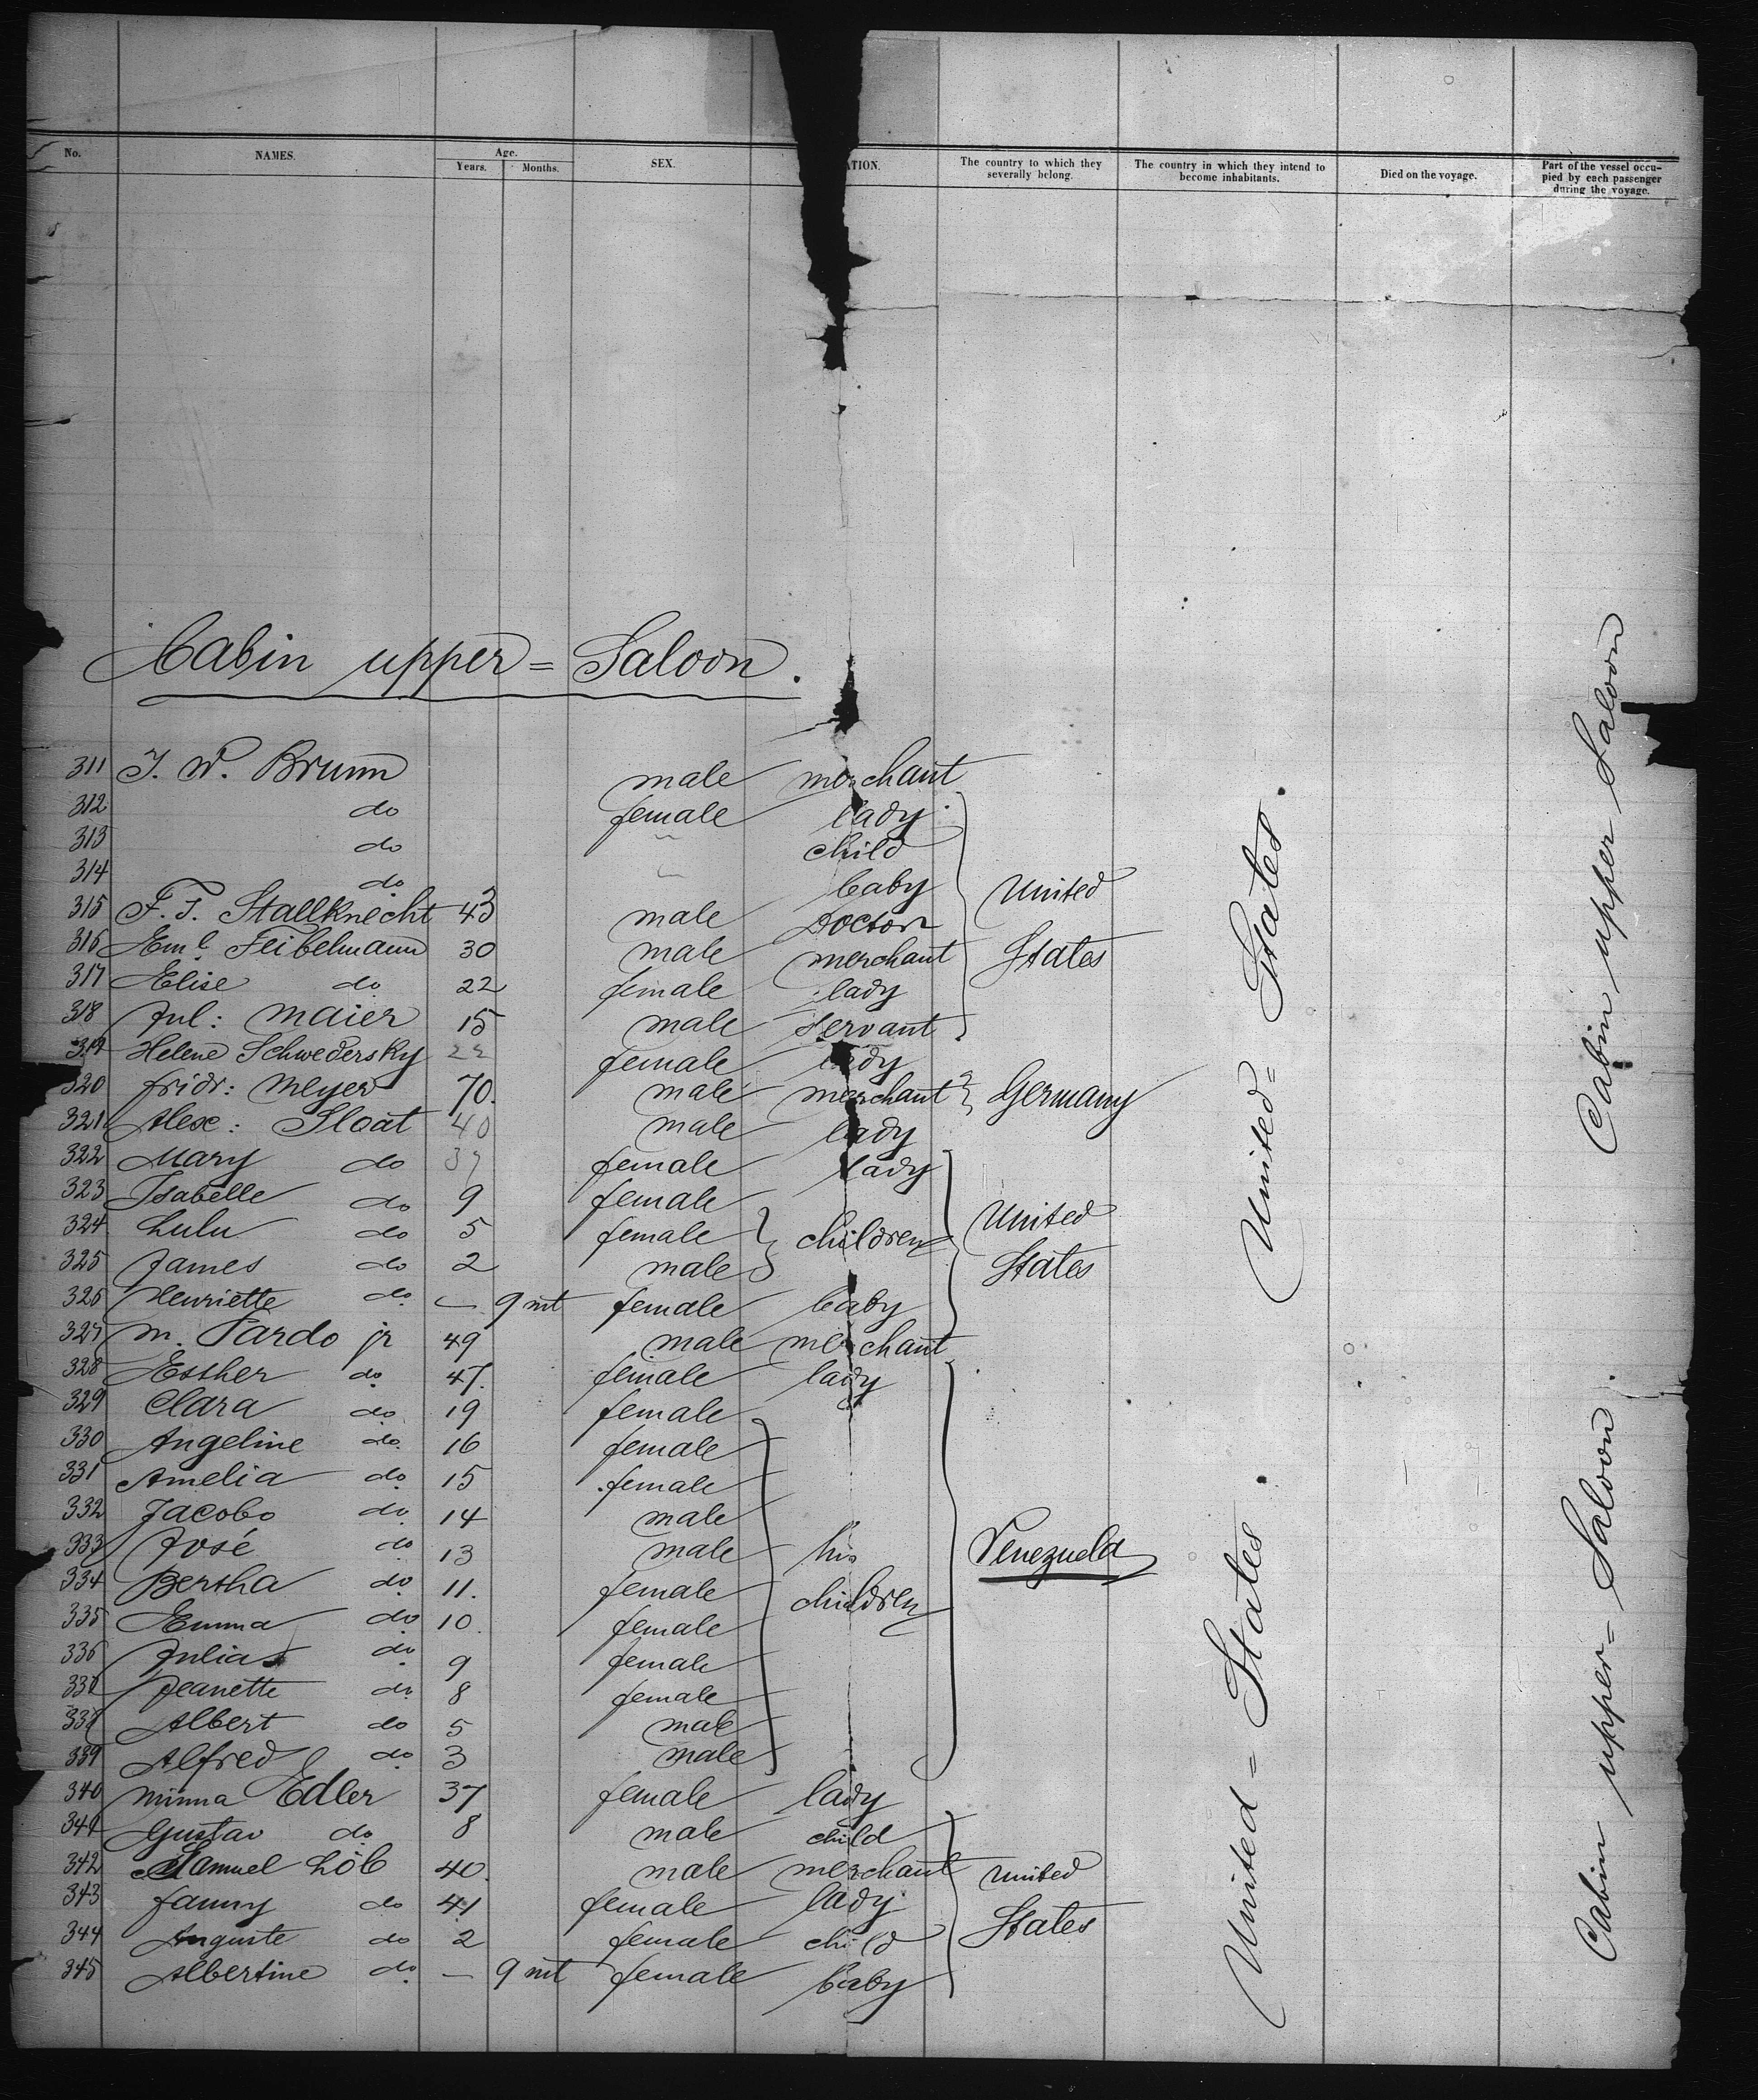 No. NAMES. Age. Years. Months. SEX. ATION. The country to which they severally belong. The country in which they intend to become inhabitants. Died on the voyage. Part of the vessel occu-pied by each passenger during the voyage.
Cabin upper = Saloon.
311 J. W. Brunn male merchant
312 do female lady
313 do " child
314 do " baby
315 F. T. Stallknecht 43 male Doctor United
316 Eml. Feibelmann 30 male merchant States
317 Elise do 22 female lady
318 Jul: Maier 15 male servant
319 Helene Schwedersky 22 female lady
320 fridr: Meyer 70. male merchant } Germany
321 Alex: Sloat 40 male lady
322 Mary do 37 female lady
323 Isabelle do 9 female
324 Lulu do 5 female } children United
325 James do 2 male States
326 Henriette do — 9 mt female baby
327 M. Pardo jr 49 male merchant
328 Esther do 47. female lady
329 Clara do 19 female
330 Angeline do 16 female
331 Amelia do 15 female
332 Jacobo do 14 male
333 José do 13 male his Venezuela
334 Bertha do 11. female children
335 Emma do 10. female
336 Julia do 9 female
337 Jeanette do 8 female
338 Albert do 5 male
339 Alfred do 3 male
340 Minna Edler 37 female lady
341 Gustav do 8 male child
342 Samuel Löb 40. male merchant United
343 fanny do 41 female lady States
344 Auguste do 2 female child
345 Albertine do — 9 mt female baby
United = States.
United = States.
Cabin upper Saloon
Cabin upper = Saloon.